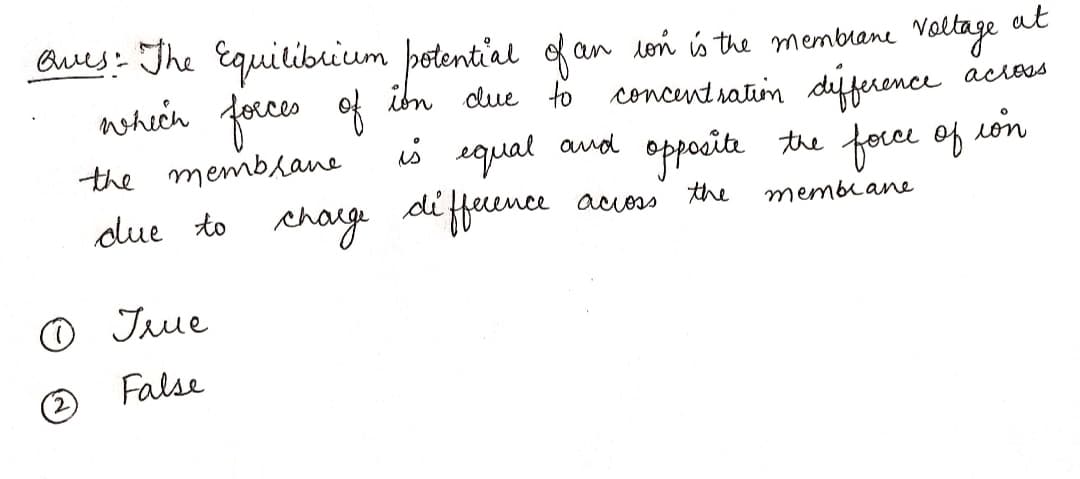 Ques:- The Equilibrium potential of an ion is the membrane Voltage at
which forces of ion due to concentration difference across
the membrane is equal and opposite the force of ion
due to charge difference across the membrane
① True
② False